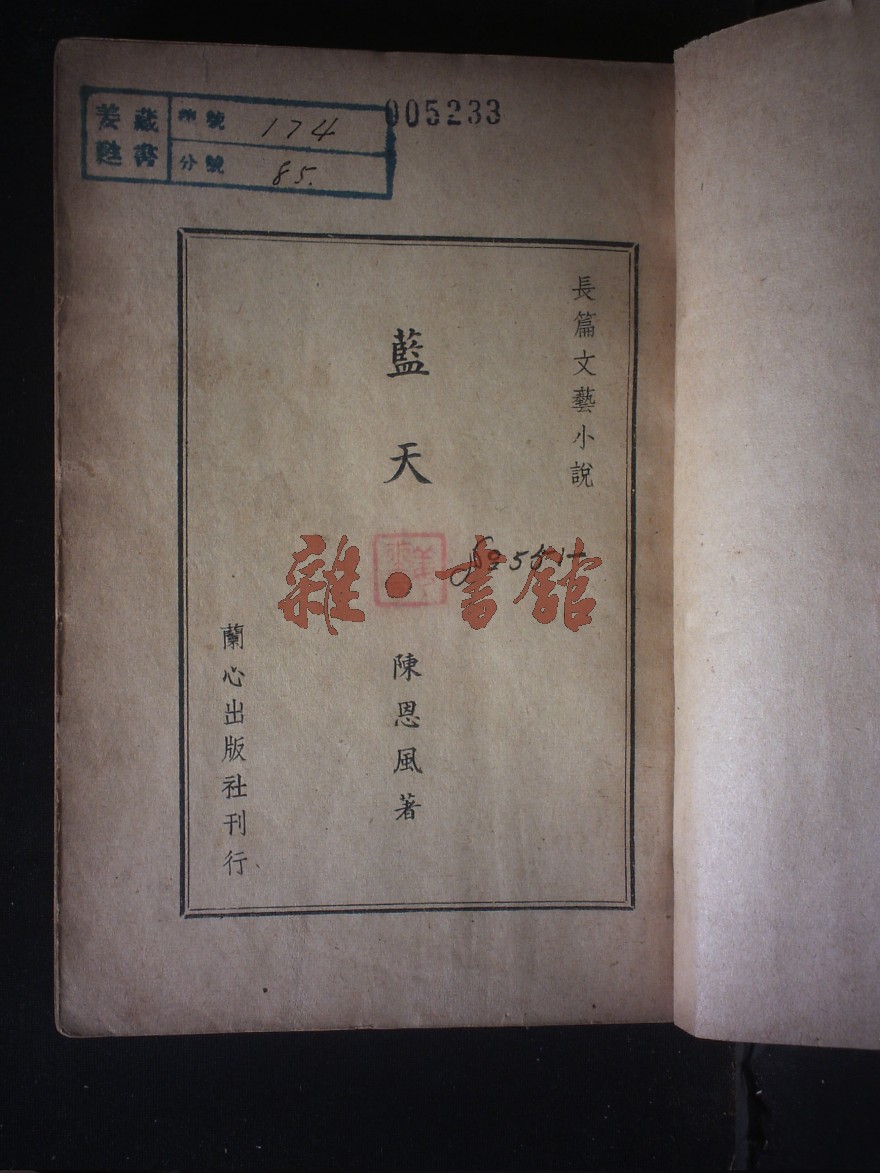 姜甦
藏書
號 174
分號 85.
005233
長篇文藝小說
藍天
雜·書館
陳恩風著
蘭心出版社刊行